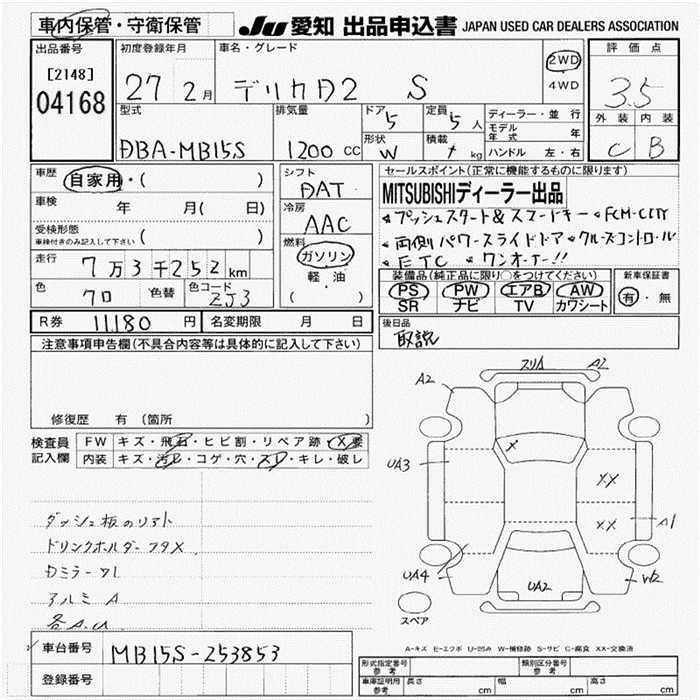 車内保管・守衛保管
JU 愛知 出品申込書 JAPAN USED CAR DEALERS ASSOCIATION
出品番号
[2148]
04168
初度登録年月
27 2月
車名・グレード
デリカD2 S
2WD
4WD
評価点
3.5
外装 内装
C B
型式
DBA-MB15S
排気量
1200 CC
ドア
5
定員
5 人
形状
W
積載
kg
ディーラー・並行
モデル年式 年
ハンドル 左・右
車歴
自家用・( )
車検 年 月( 日)
受検形態
車検付きのみ記入して下さい ( )
走行
7万3千252 km
色
クロ
色替
色コード
ZJ3
シフト
DAT
冷房
AAC
燃料
ガソリン
軽・油
( )
セールスポイント(正常に機能するものに限ります)
MITSUBISHIディーラー出品
プッシュスタート&スマートキー FCM-CITY
両側パワースライドドア クルーズコントロール
ETC ワンオーナー!!
装備品(純正品に限り○をつけてください)
PS PW エアB AW
SR ナビ TV カワシート
新車保証書
有・無
R券 11,180 円 名変期限 月 日
後日品
取説
注意事項申告欄(不具合内容等は具体的に記入して下さい)
修復歴 有 (箇所 )
検査員
記入欄
FW キズ・飛石・ヒビ割・リペア跡・X要
内装 キズ・汚レ・コゲ・穴・スレ・キレ・破レ
ダッシュ板のリアト
ドリンクホルダーフタX
Dミラー
アルミ A
各A.U
A2
スリA
A2
X
UA3
XX
XX
A1
UA4
UA2
W2
スペア
A-キズ E-エクボ U-凹み W-補修跡 S-サビ C-腐食 XX-交換済
車台番号 MB15S-253853
登録番号
形式指定番号
参考
類別区分番号
参考
車庫証明用
参考
長さ cm 幅 cm 高さ cm